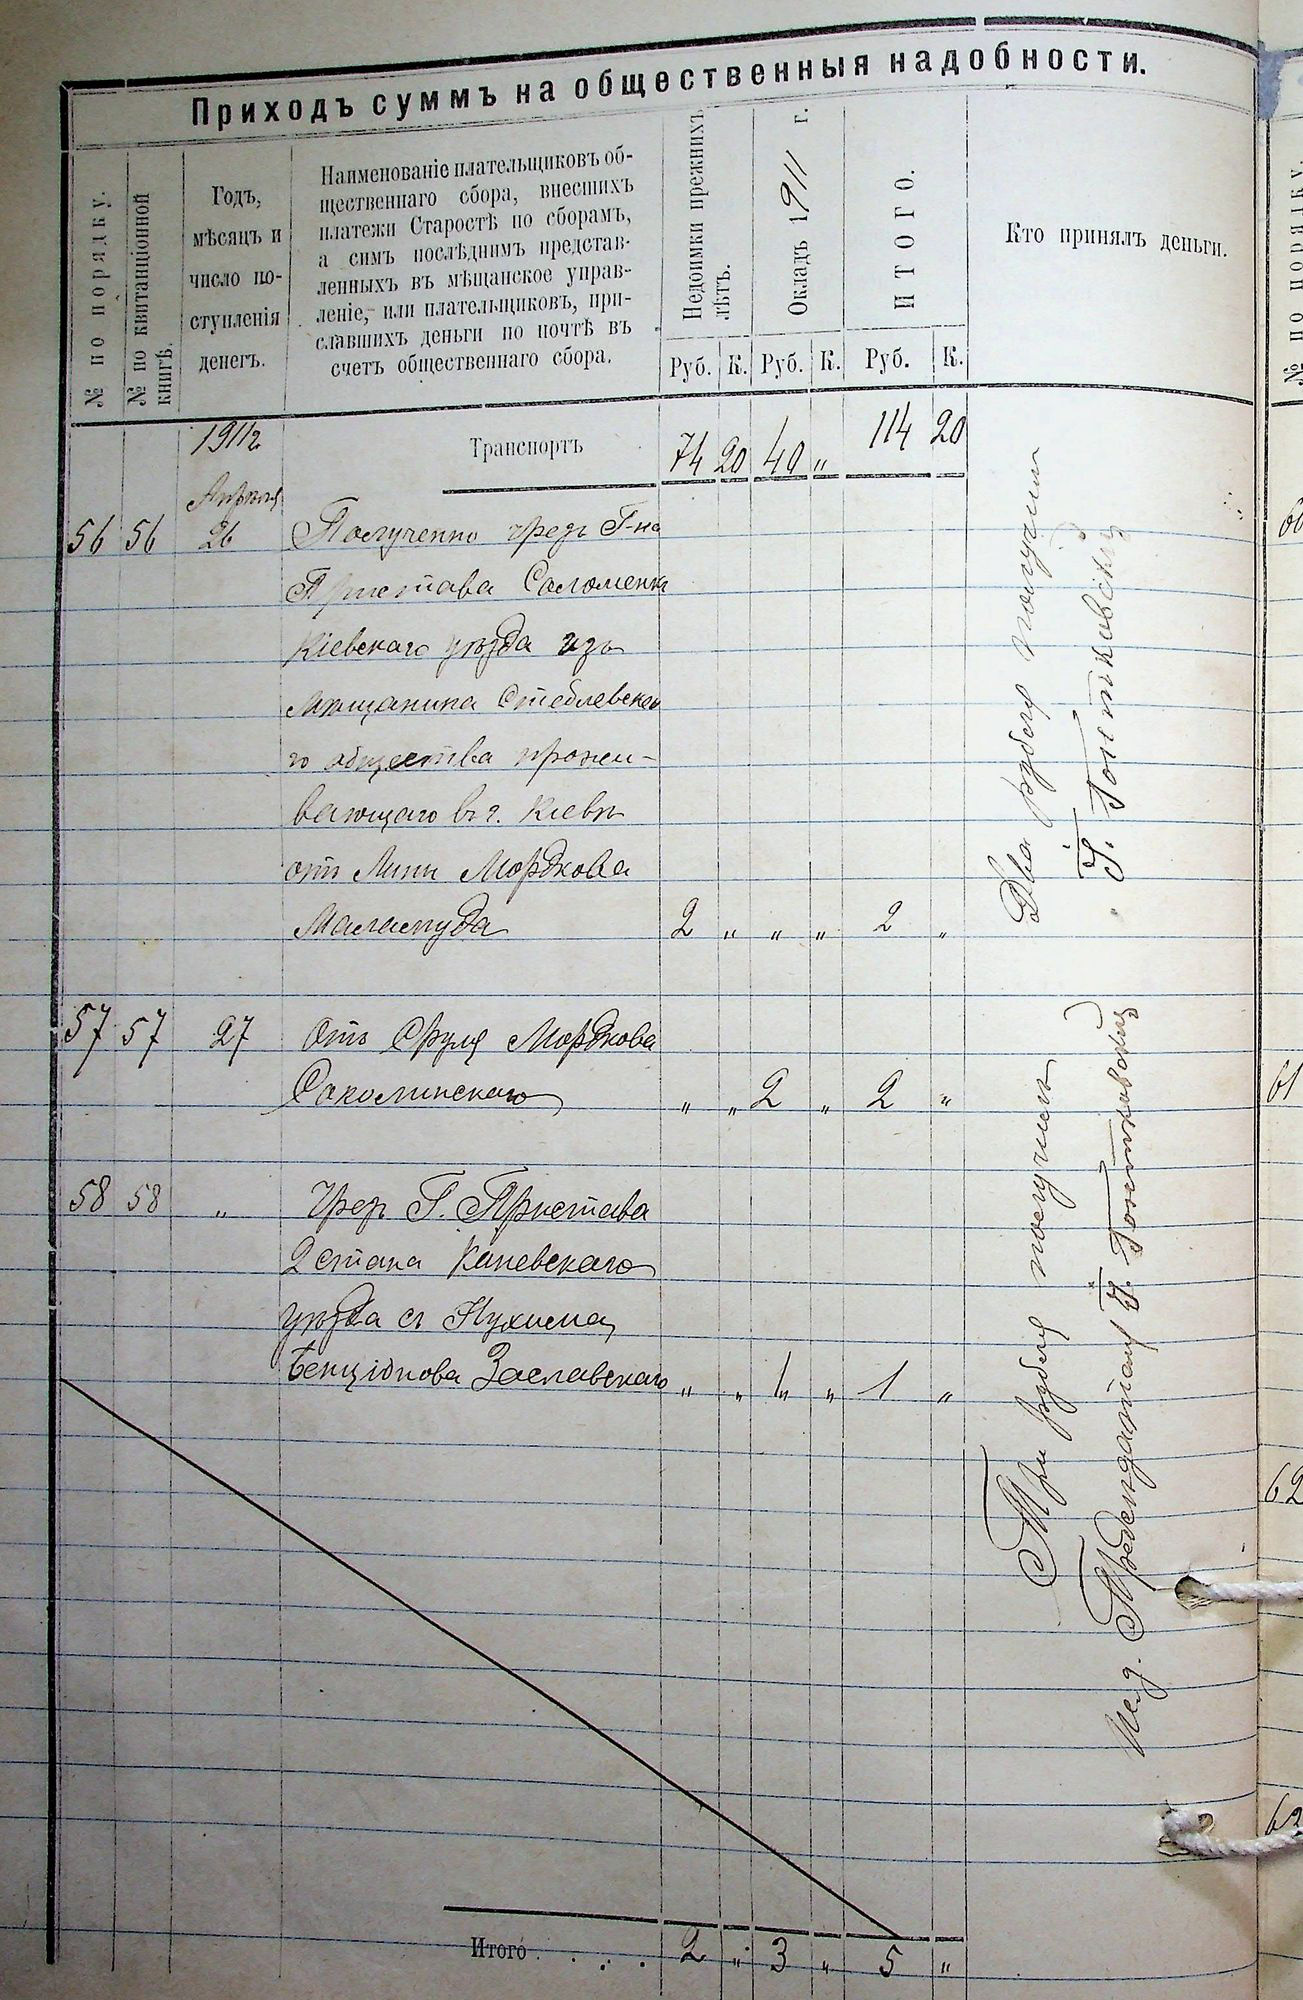 Приходъ суммъ на общественныя надобности.
№ по порядку.
№ по квитанціонной
книгѣ.
Годъ,
мѣсяцъ и
число по-
ступленія
денегъ.
Наименованіе плательщиковъ об-
щественнаго сбора, внесшихъ
платежи Старостѣ по сборамъ,
а симъ послѣднимъ представ-
ленныхъ въ мѣщанское управ-
леніе, или плательщиковъ, при-
славшихъ деньги по почтѣ въ
счетъ общественнаго сбора.
Недоимки прежнихъ
лѣтъ.
Окладъ 1911 г.
ИТОГО.
Кто принялъ деньги.
Руб. К. Руб. К. Руб. К.
1911 г Транспортъ 74 20 40 „ 114 20
Апрѣля
56 56 26 Полученно чрезъ Г-на
Пристава Соломенк
Кіевскаго уѣзда изъ
Мѣщанина Стеблевска
го общества прожи-
вающаго въ г. Кіевѣ
отъ Мордкова
2 „ „ „ 2 „
Два рубля получилъ
57 57 27 Отъ Сруля Мордкова
Соколинскаго „ „ 2 „ 2 „
58 58 „ Чрез Г. Пристава
2 стана Каневскаго
уѣзда съ Нухима
Бенціонова Заславскаго „ „ 1 „ 1 „
Три рубля получилъ
Итого . . . . 2 „ 3 „ 5 „
№ по порядку.
61
62